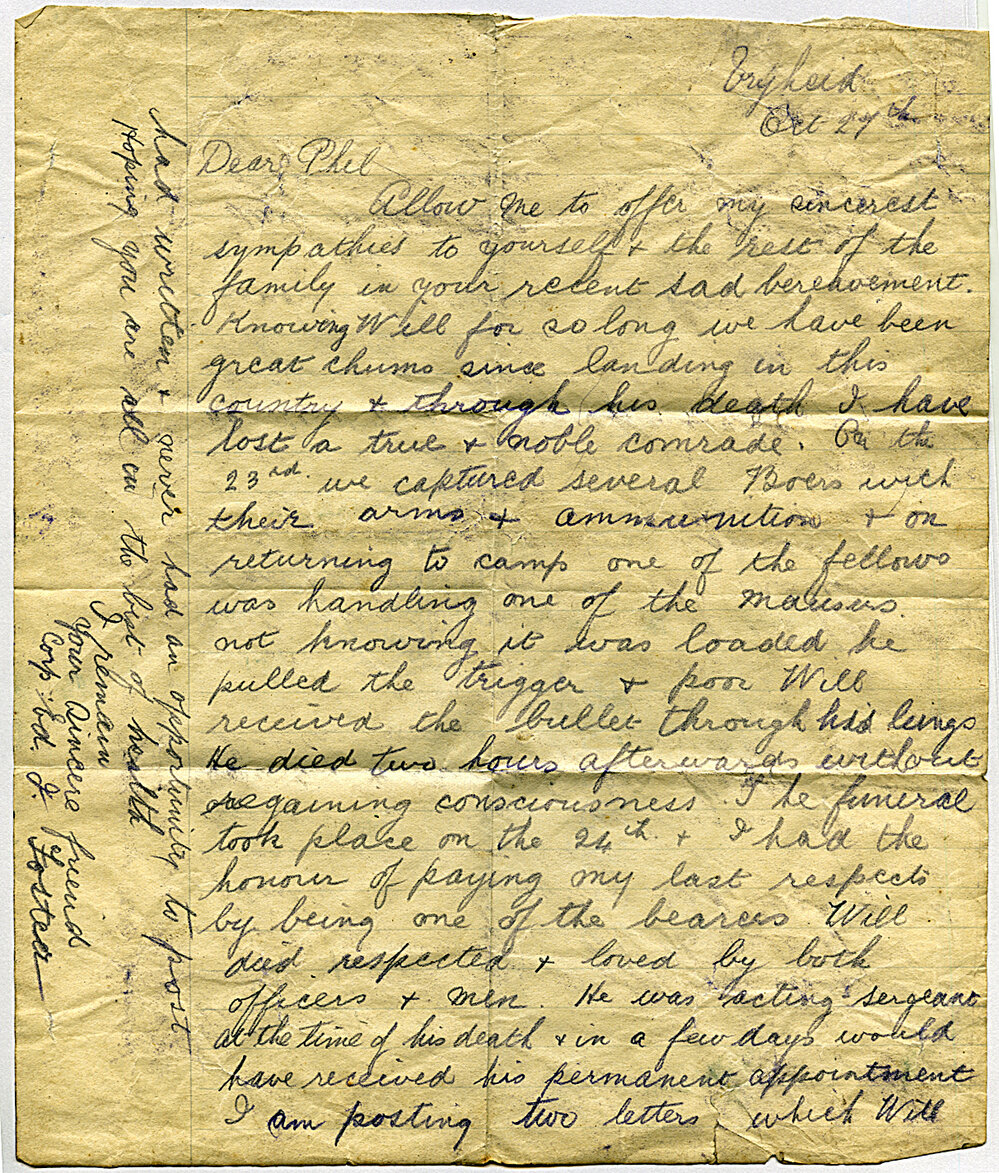 Vryheid
Oct 27th
Dear Phil
Allow me to offer my sincerest
sympathies to yourself & the rest of the
family in your recent sad bereavement.
Knowing Will for so long we have been
great chums since landing in this
country & through his death I have
lost a true & noble comrade. On the
23rd we captured several Boers with
their arms & ammunition & on
returning to camp one of the fellows
was handling one of the mausers
not knowing it was loaded he
pulled the trigger & poor Will
received the bullet through his lungs
He died two hours afterwards without
regaining consciousness. The funeral
took place on the 24th & I had the
honour of paying my last respects
by being one of the bearers Will
died respected & loved by both
officers & men. He was acting sergeant
at the time of his death & in a few days would
have received his permanent appointment
I am posting two letters which Will
had written & never had an opportunity to post
Hoping you are all in the best of health
I remain
Your Sincere friend
Corp Ed. J. Foster